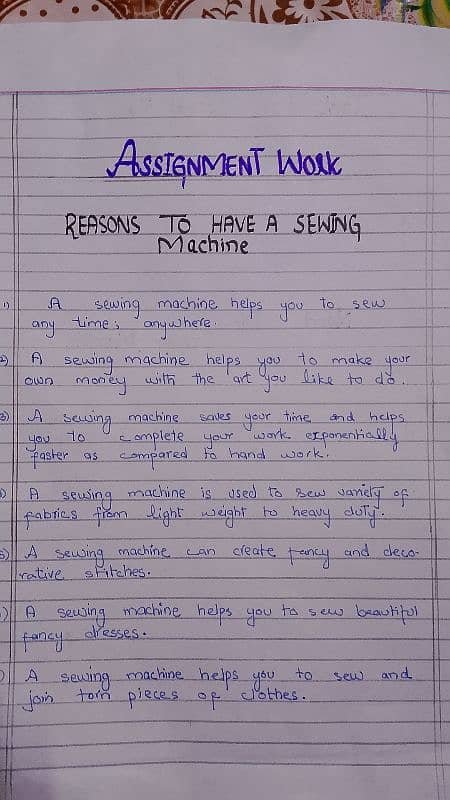 ASSIGNMENT WORK
REASONS TO HAVE A SEWING
Machine
1) A sewing machine helps you to sew
any time; anywhere.
2) A sewing machine helps you to make your
own money with the art you like to do.
3) A sewing machine saves your time and helps
you to complete your work exponentially
faster as compared to hand work.
A sewing machine is used to sew variety of
fabrics from light weight to heavy duty.
5) A sewing machine can create fancy and deco-
rative stitches.
A sewing machine helps you to sew beautiful
fancy dresses.
A sewing machine helps you to sew and
join torn pieces of clothes.